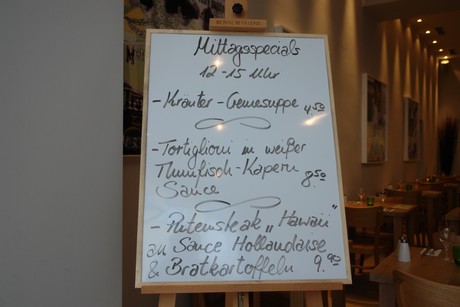 Mittagsspecials
12-15 Uhr
- Kräuter-Gemüsesuppe 4.50
- Tortiglioni in weißer
Thunfisch-Kapern
Sauce 8.50
- Putensteak „Hawaii"
an Sauce Hollandaise
& Bratkartoffeln 9.90